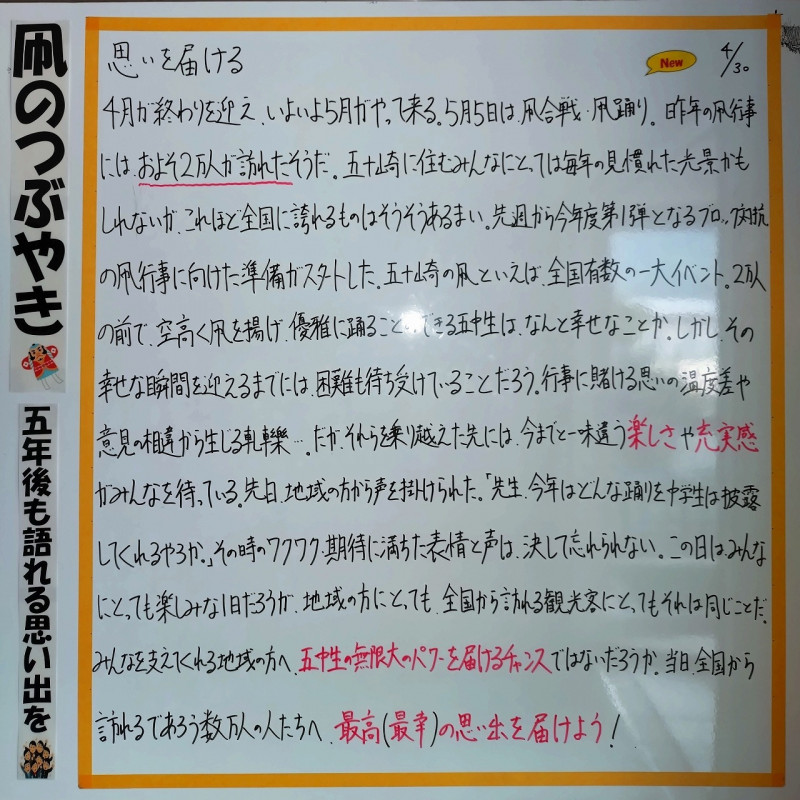 凧のつぶやき
五年後も語れる思い出を
思いを届ける
New
4/30
4月が終わりを迎え、いよいよ5月がやって来る。5月5日は、凧合戦・凧踊り。昨年の凧行事
には、およそ2万人が訪れたそうだ。五十崎に住むみんなにとっては毎年の見慣れた光景かも
しれないが、これほど全国に誇れるものはそうそうあるまい。先週から今年度第1弾となるブロック対抗
の凧行事に向けた準備がスタートした。五十崎の凧といえば、全国有数の一大イベント。2万人
の前で、空高く凧を揚げ、優雅に踊ることができる五中生は、なんと幸せなことか。しかし、その
幸せな瞬間を迎えるまでには、困難も待ち受けていることだろう。行事に賭ける思いの温度差や
意見の相違から生じる軋轢…。だが、それらを乗り越えた先には、今までと一味違う楽しさや充実感
がみんなを待っている。先日、地域の方から声を掛けられた。「先生、今年はどんな踊りを中学生は披露
してくれるやろか。」その時のワクワク・期待に満ちた表情と声は、決して忘れられない。この日は、みんな
にとっても楽しみな1日だろうが、地域の方にとっても、全国から訪れる観光客にとってもそれは同じことだ。
みんなを支えてくれる地域の方へ、五中生の無限大のパワーを届けるチャンスではないだろうか。当日、全国から
訪れるであろう数万人の人たちへ、最高(最幸)の思い出を届けよう！